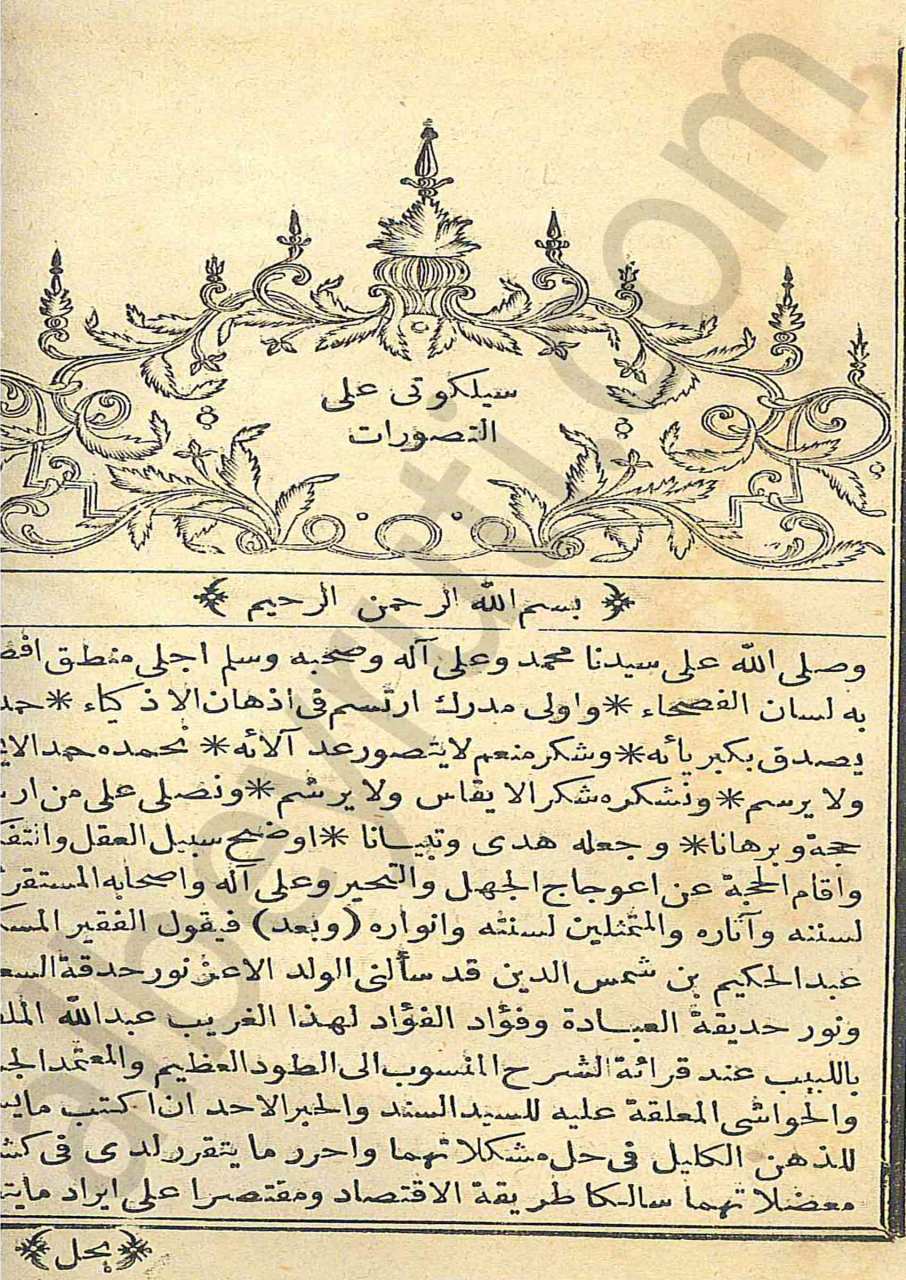 سيلكوتى على
التصورات
بسم الله الرحمن الرحيم
وصلى الله على سيدنا محمد وعلى آله وصحبه وسلم اجلى منطق
به لسان الفصحاء * واولى مدرك ارتسم فى اذهان الاذكياء *
يصدق بكبريائه * وشكر منعم لا يتصور عد آلائه * نحمده حمدا
ولا يرسم * ونشكره شكرا لا يقاس ولا يرشم * ونصلى على من
حجة وبرهانا * وجعله هدى وتبيانا * اوضح سبيل العقل
واقام الحجة عن اعوجاج الجهل والتحير وعلى آله واصحابه
لسننه وآثاره والمتمثلين لسنته وانواره (وبعد) فيقول الفقير
عبد الحكيم بن شمس الدين قد سألنى الولد الاعز نور حدقة
ونور حديقة العبادة وفؤاد الفؤاد لهذا الغريب عبد الله
باللبيب عند قرائة الشرح المنسوب الى الطود العظيم والمعتمد
والحواشى المعلقة عليه للسيد السند والحبر الاحد ان اكتب
للذهن الكليل فى حل مشكلاتهما واحرر ما يتقرر لدى فى
معضلاتهما سالكا طريقة الاقتصاد ومقتصرا على ايراد
يحل
albeyruti.com